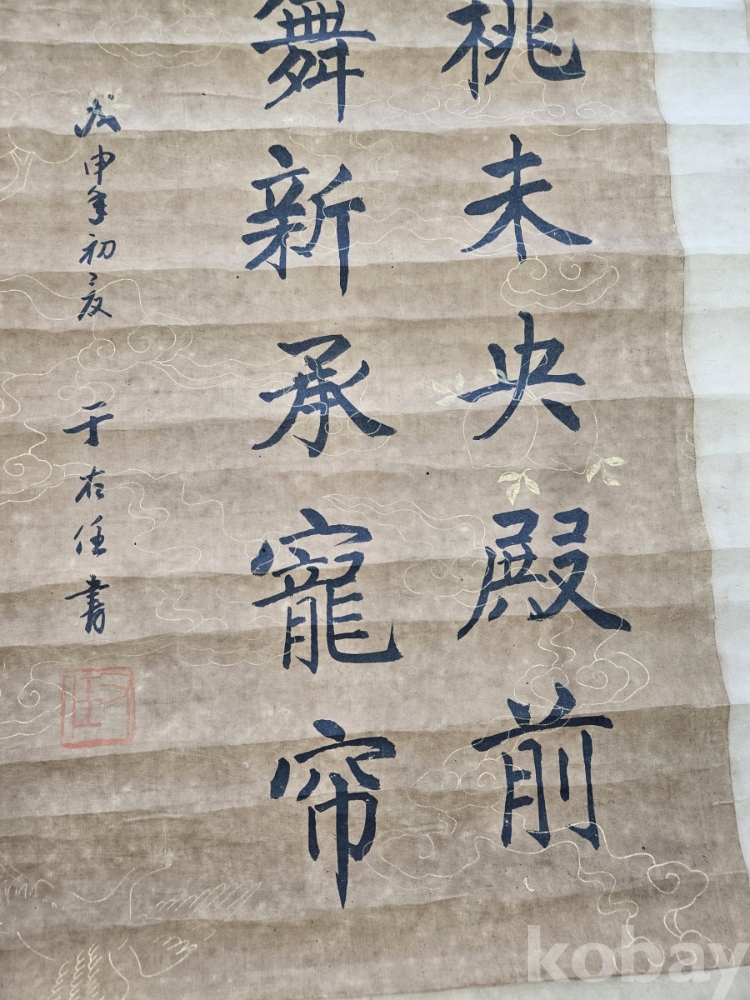 桃未央殿前
舞新承寵帘
戊申年初夏 于右任書
kobay